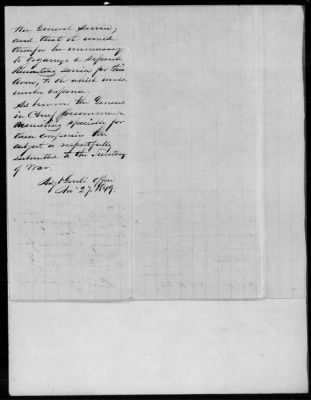 the General Service;
and that it would
therefor be unnecessary
to organize a separate
Recruiting Service for this
Arm, to do which would
involve expense.
As however the General
in Chief recommends
recruiting specially for
these companies the
subject is respectfully
submitted to the Secretary
of War.
Adjt Genls Office
Nov 27. 1849.